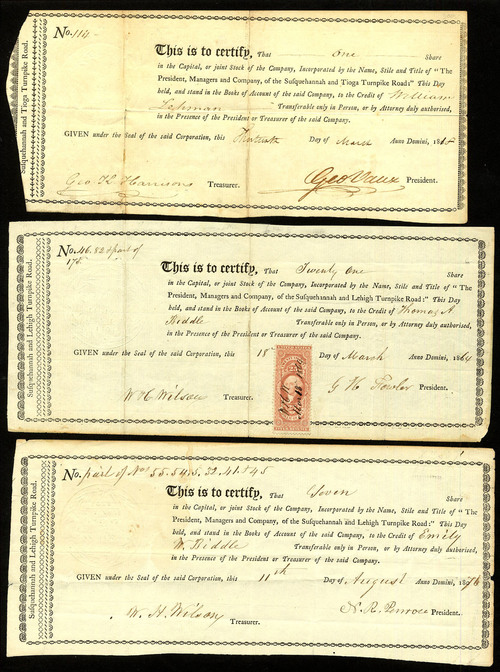 Susquehannah and Tioga Turnpike Road.
No. 114
This is to certify, That one Share
in the Capital, or joint Stock of the Company, Incorporated by the Name, Stile and Title of "The
President, Managers and Company, of the Susquehannah and Tioga Turnpike Road:" This Day
held, and stand in the Books of Account of the said Company, to the Credit of William
Lehman Transferable only in Person, or by Attorney duly authorised,
in the Presence of the President or Treasurer of the said Company.
GIVEN under the Seal of the said Corporation, this Thirteenth Day of March Anno Domini, 181
Geo K Harrison Treasurer. Geo Vaux President.
Susquehannah and Lehigh Turnpike Road.
No. 46. 52 & part of
175
This is to certify, That Twenty One Share
in the Capital, or joint Stock of the Company, Incorporated by the Name, Stile and Title of "The
President, Managers and Company, of the Susquehannah and Lehigh Turnpike Road:" This Day
held, and stand in the Books of Account of the said Company, to the Credit of Thomas A
Biddle Transferable only in Person, or by Attorney duly authorised,
in the Presence of the President or Treasurer of the said Company.
GIVEN under the Seal of the said Corporation, this 18 Day of March Anno Domini, 1864
W H Wilson Treasurer. G H Fowler President.
Susquehannah and Lehigh Turnpike Road.
No. part of Nos 55.54.5.32.41.&45
This is to certify, That Seven Share
in the Capital, or joint Stock of the Company, Incorporated by the Name, Stile and Title of "The
President, Managers and Company, of the Susquehannah and Lehigh Turnpike Road:" This Day
held, and stand in the Books of Account of the said Company, to the Credit of Emily
W. Biddle Transferable only in Person, or by Attorney duly authorised,
in the Presence of the President or Treasurer of the said Company.
GIVEN under the Seal of the said Corporation, this 11th Day of August Anno Domini, 1876
W. H. Wilson Treasurer. N. R. Penrose President.